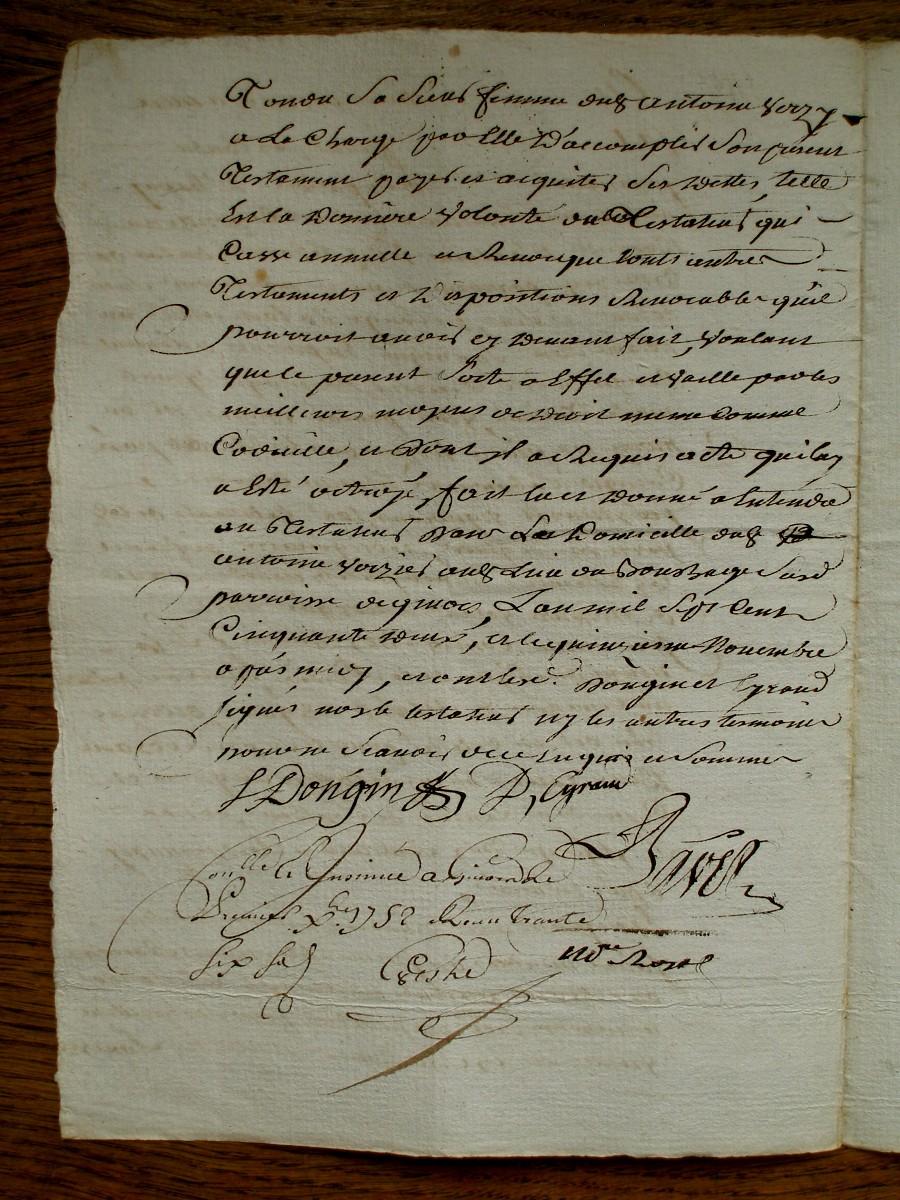 Tondu Sa Sieus femme dud antoine verzy
a La Charge par Elle D'accomplir Son présent
Testament payer et acquiter Ses Dettes, telle
Est la Dernière Volonté dud Testateur qui
Casse annulle et Revocque touts autres
Testaments et Dispositions Revocable qu'il
pourroit avoir cy Devant fait, Voulant
que le present Sorte a Effet et vaille par les
meilleurs moyens de Droit meme Comme
Codicille, et Dont il a Requis acte qui luy
a Esté octroyé, fait lu et Donné a Entendre
au Testateur Dans Le Domicille dud
antoine verzier aud Lieu du Bouchage Sud
parroisse de
L'an mil Sept Cent
Cinquante Deux, et le quinzieme Novembre
apres midy, et ont les d. Dongin et Eyraud
signés non le testateur ny les autres temoins
pour ne Scavoir de ce Enquis et Sommés
Dongin D, Eyraud
Conllé et Insinué a
Premier Xbre 1752 Reçu trante
six sols
Nore Royal